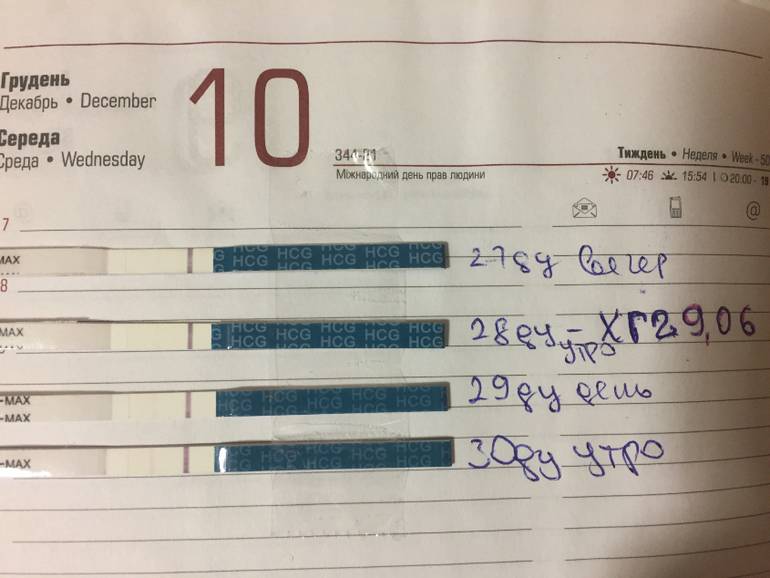 Грудень
Декабрь • December
10
Середа
Среда • Wednesday
344-21
Міжнародний день прав людини
Тиждень • Неделя • Week - 50
07:46 15:54 20:00 - 19
7
MAX
HCG HCG HCG HCG
HCG HCG HCG HCG
27ду вечер
8
MAX
HCG HCG HCG HCG
HCG HCG HCG HCG
28ду - ХГ29,06
утро
-MAX
-MAX
HCG HCG HCG HCG
HCG HCG HCG HCG
29ду день
-MAX
HCG HCG HCG HCG
HCG HCG HCG
30ду утро